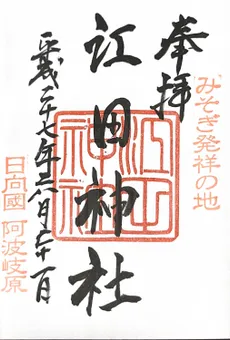 奉拝
みそぎ発祥の地
江田神社
江田
神社
平成二十七年
日向國 阿波岐原